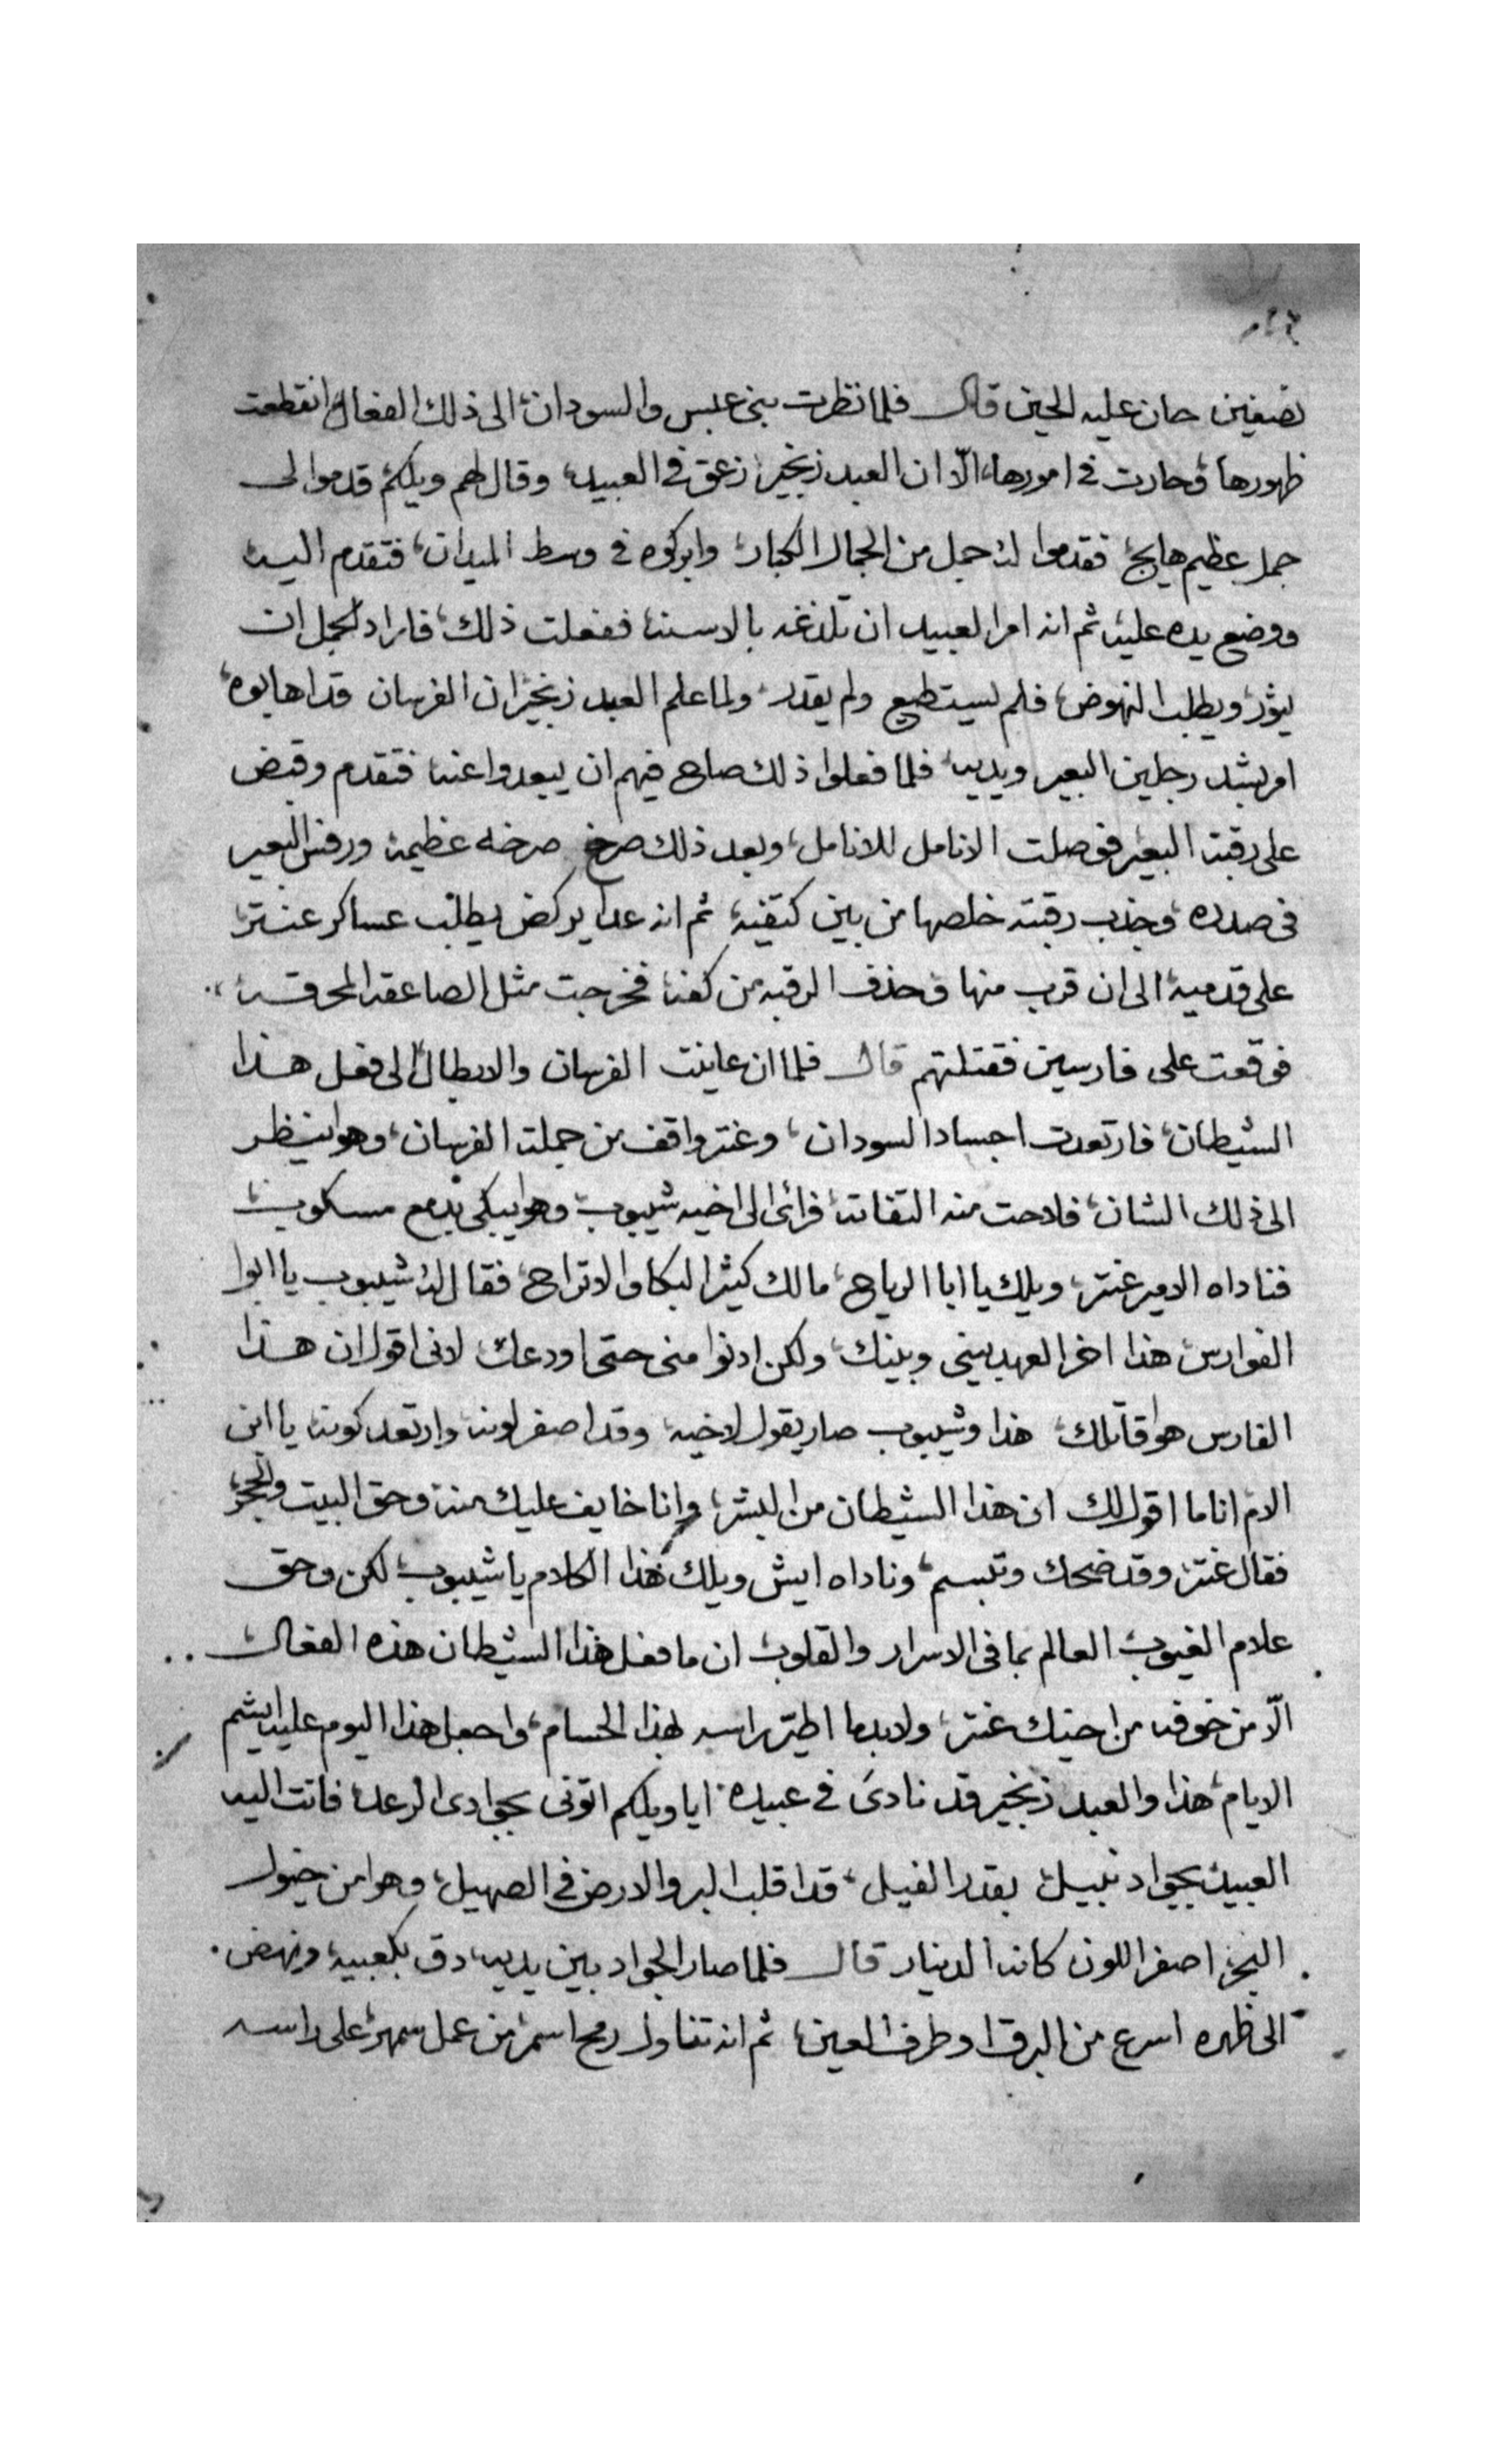 نصفين حان عليه الحين قال فلما نظرت بني عبس والسودان الى ذلك الفعال انقطعت
ظهورها وحارت في امورها، الّا ان العبد زنجير زعق في العبيد، وقال لهم ويلكم قدموا لى
جمل عظيم هايج فقدموا له جمل من الجمال الكبار، وابركوه في وسط الميدان، فتقدم اليه
ووضع يده عليه ثم انه امر العبيد ان تلدغه بالاسنه ففعلت ذلك، فاراد الجمل ان
يثور ويطلب النهوض، فلم يستطيع ولم يقدر، ولما علم العبد زنجير ان الفرسان قد اهابوه،
امر بشد رجلين البعير ويديه، فلما فعلوا ذلك صاح فيهم ان يبعدوا عنه فتقدم وقبض
على رقبة البعير فوصلت الانامل للانامل، وبعد ذلك صرخ صرخه عظيمة ورفس البعير
في صدره، وجذب رقبته خلصها من بين كتفيه، ثم انه عدا يركض يطلب عساكر عنتر
على قدميه الى ان قرب منها وحذف الرقبه من كفه فخرجت مثل الصاعقه المحرقه
فوقعت على فارسين فقتلتهم قال فلما ان عاينت الفرسان والابطال الى فعل هذا
الشيطان، فارتعدت اجساد السودان، وعنتر واقف من جملة الفرسان، وهو اينظر
الى ذلك الشان، فلاحت منه التفاته فرائ الى اخيه شيبوب وهو ايبكي بدمع مسكوب
فناداه الامير عنتر، ويلك يا ابا الرياح، مالك كيثر البكا والاتراح، فقال له شيبوب يا ابوا
الفوارس هذا اخر العهد بيني وبينك، ولكن ادنوا منى حتى اودعك لانى اقول ان هذا
الفارس هو قاتلك، هذا وشيبوب صار يقول لاخيه، وقد اصفر لونه وارتعد كونه، يا ابن
الام انا ما اقول لك ان هذا الشيطان من البشر، وانا خايف عليك منه وحق البيت والحجر
فقال عنتر وقد ضحك وتبسم، وناداه ايش ويلك هذا الكلام يا شيبوب لكن وحق
علام الغيوب العالم بما في الاسرار والقلوب ان ما فعل هذا الشيطان هذه الفعال
الّا من خوفه من اخيك عنتر، ولابد ما اطيّر راسه بهذا الحسام، واجعل هذا اليوم عليه ايشم
الايام، هذا والعبد زنجير قد نادى في عبيده ايا ويلكم اتوني بجوادى الرعد، فاتت اليه
العبيد بجواد نبيل بقدر الفيل، قد اقلب البر والارض في الصهيل، وهو امن خيول
البحر، اصفر اللون كانه الدينار قال فلما صار الجواد بين يديه، دق بكعبيه ونهض
الى ظهره اسرع من البرق او طرف العين، ثم انه تناول رمح اسمر من عمل سمهر، على راسه